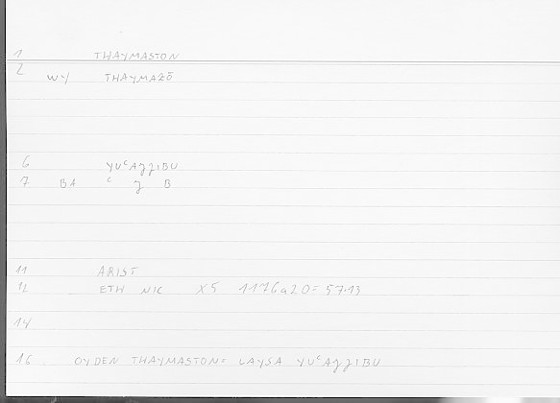 1 THAYMASTON
2 WY THAYMAZŌ
6 YUᶜAJJIBU
7 BA ᶜ J B
11 ARIST
12 ETH NIC X5 1176a20=5713
14
16 OYDEN THAYMASTON= LAYSA YUᶜAJJIBU